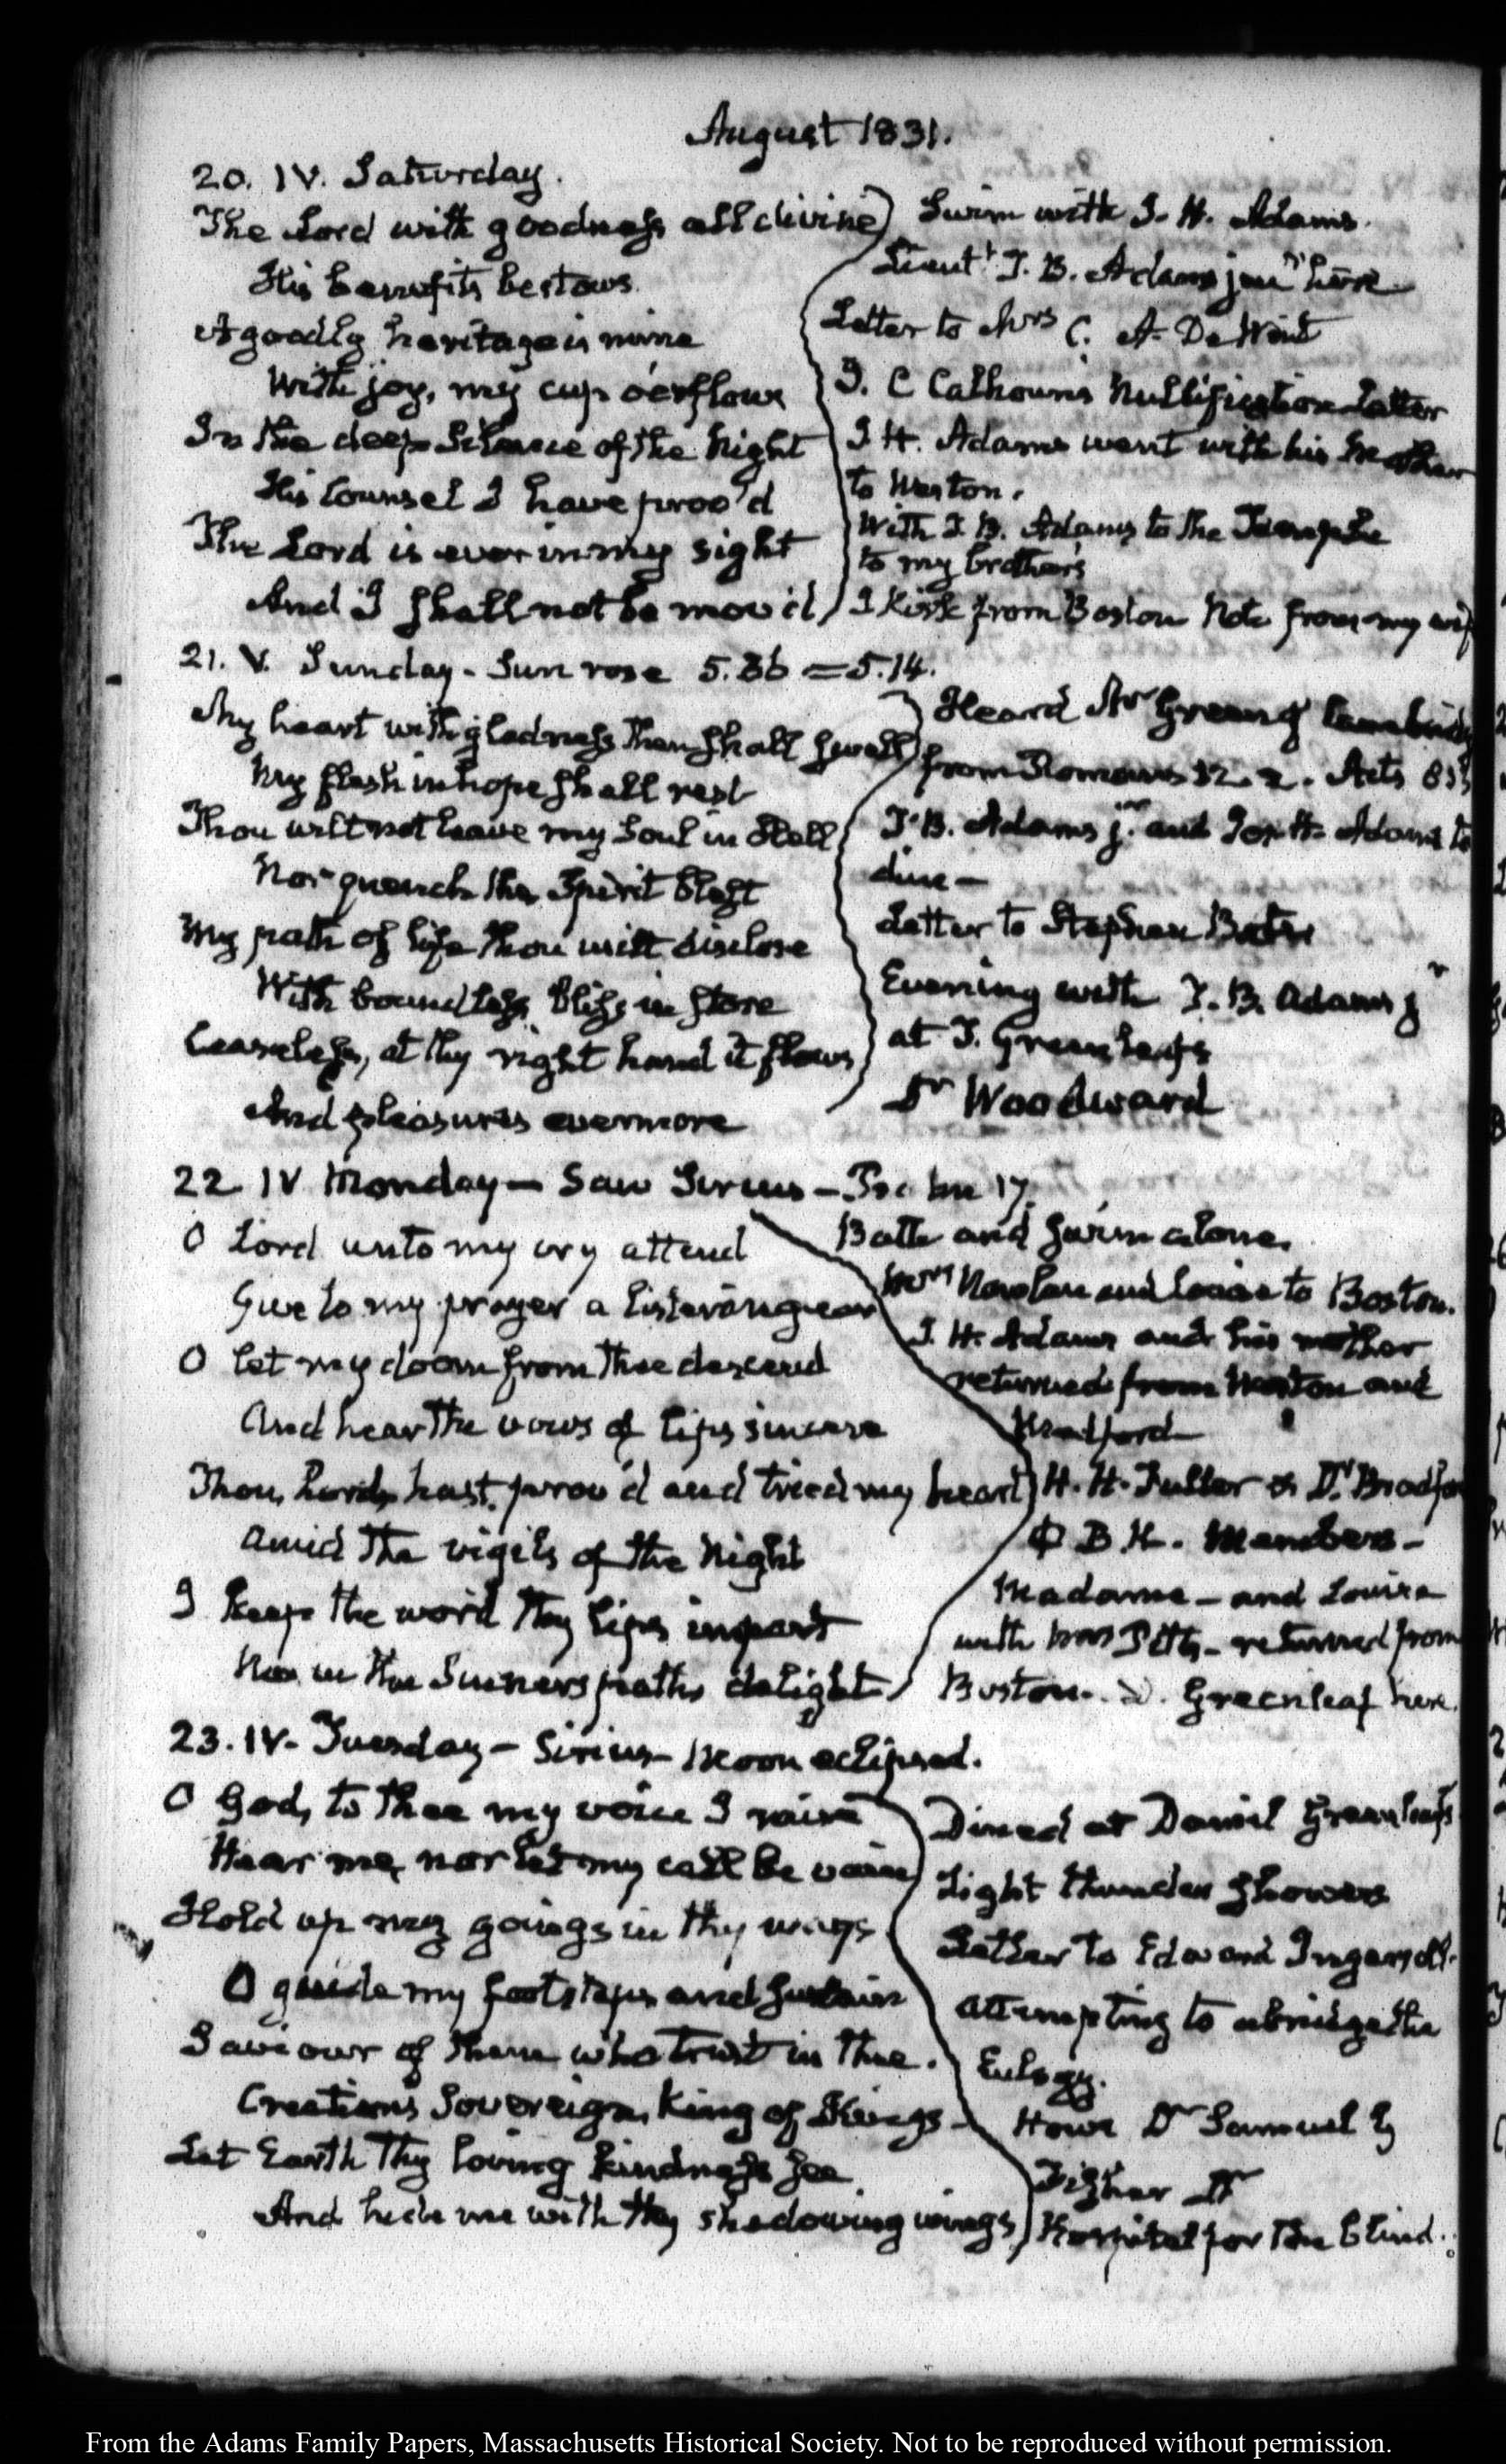 August 1831.
20. IV. Saturday.
The Lord with goodness all divine
His benefits bestows.
A goodly heritage is mine
With joy, my cup o'erflows
In the deep silence of the Night
His Counsel I have proov'd
The Lord is ever in my sight
And I shall not be mov'd
Swim with J. H. Adams.
Lieutt. T. B. Adams junr. here
Letter to Mrs C. A. De Wint
J. C Calhoun's Nullification Letter
J H. Adams went with his Mother
to Weston.
With T. B. Adams to the Temple
to my brothers
J Kirk from Boston Note from my wif
21. V. Sunday. Sun rose 5.36 = 5.14.
My heart with gladness then shall swell
My flesh in hope shall rest
Thou wilt not leave my Soul in Hell
Nor quench the Spirit blest
My path of life thou wilt disclose
With boundless bliss in store
Ceaseless, at thy right hand it flows
And pleasures evermore
Heard Mr Green of
from Romans 12. 2. Acts
T. B. Adams jr. and Jos. H. Adams to
dine —
Letter to Stephen Bates
Evening with T. B. Adams jr
at T. Greenleaf's
Dr Woodward
22 IV Monday — Saw Sirius — Psalm 17.
O Lord unto my cry attend
Give to my prayer a listening ear
O let my doom from thee descend
And hear the vows of lips sincere
Thou, Lord, hast prov'd and tried my heart
Amid the vigils of the Night
I keep the word thy lips impart
Nor in the Sinners paths delight
Bath and swim alone.
Mrs Nowlan and Louisa to Boston.
J. H. Adams and his mother
returned from Weston and
Medford
H. H. Fuller & Dr. Bradfor
Φ B K. Members —
Madame — and Louisa
with Mrs — returned from
Boston. D. Greenleaf here.
23. IV. Tuesday — Sirius — Moon eclipsed.
O God, to thee my voice I raise
Hear me, nor let my call be vain
Hold up my goings in thy ways
O guide my footsteps and sustain
Saviour of them who trust in thee.
Creation's Sovereign, King of Kings —
Let Earth thy loving kindness see
And hide me with thy shadowing wings
Dined at Daniel Greenleaf's
Light thunder Showers
Letter to Edward Ingersoll.
Attempting to abridge the
Eulogy.
Howe Dr Samuel G
Fisher Dr
Hospital for the blind.
From the Adams Family Papers, Massachusetts Historical Society. Not to be reproduced without permission.